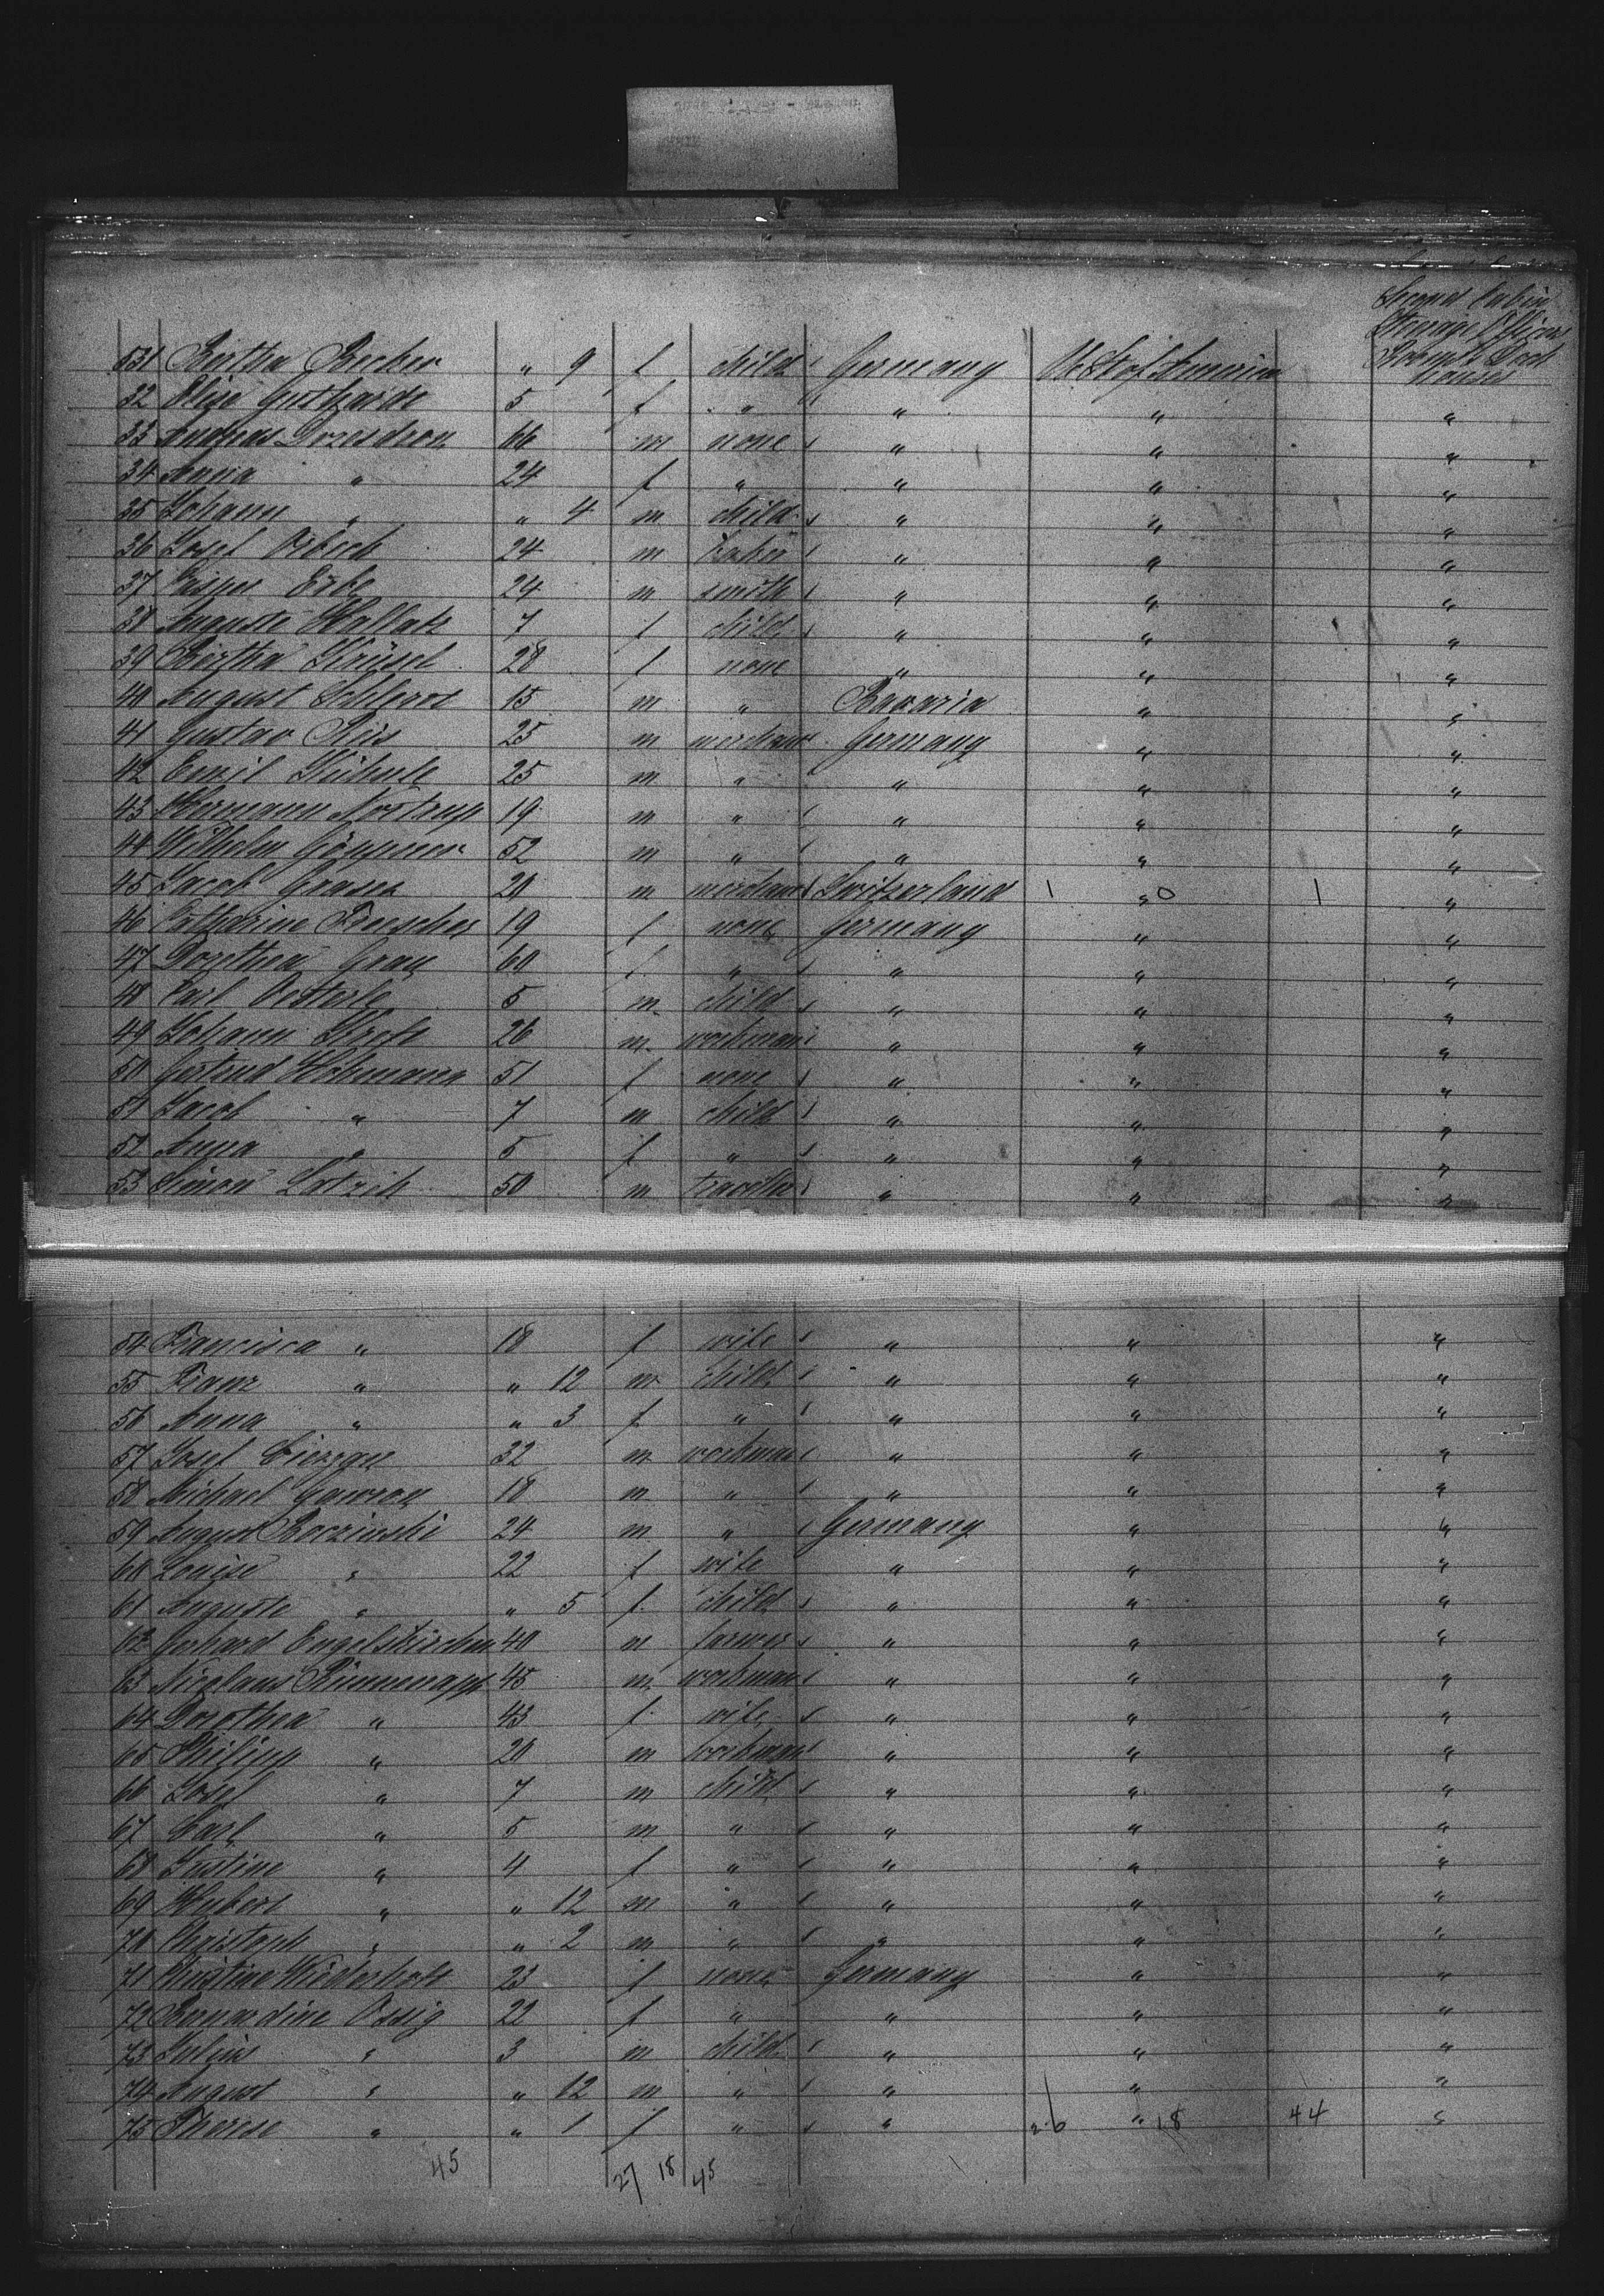 Second Cabin
Steerage Officers
Rooms & Deck
houses
531 Bertha Becher " 9 f child Germany U. St. of America
32 Elise Guthardt 5 f " " " "
33 Andreas Drzesdzon 66 m none " " "
34 Anna " 24 f " " " "
35 Johann " " 4 m child " " "
36 Josef 24 m " " "
37 Erbe 24 m smith " " "
38 Auguste Hallatz 7 f child " " "
39 Bertha Krüsel 28 f none " " "
40 August 15 m " Bavaria " "
41 Gustav 25 m merchant Germany " "
42 Emil 25 m " " " "
43 Hermann Nortrup 19 m " " " "
44 Wilhelm 52 m " " " "
45 Jacob Graser 20 m merchant Switzerland 1 " 0 1 "
46 Catharine Froescher 19 f none Germany " "
47 Dorothea Grau 60 f " " " "
48 Carl Oesterle 5 m child " " "
49 Johann 26 m workman " " "
50 Gertrud Hohmann 51 f none " " "
51 Jacob " 7 m child " " "
52 Anna " 5 f " " " "
53 Simon Latzik 50 m traveller " " "
54 Francisca " 18 f wife " " "
55 Franz " " 12 m child " " "
56 Anna " " 3 f " " " "
57 Josef 32 m workman " " "
58 Michael Gawron 18 m " " " "
59 August Roczinski 24 m " Germany " "
60 Louise " 22 f wife " " "
61 Auguste " " 5 f child " " "
62 Gerhard Engelskirchen 40 m farmer " " "
63 Nicolaus Rünnenapp 45 m workman " " "
64 Dorothea " 43 f wife " " "
65 Philipp " 20 m workman " " "
66 Josef " 7 m child " " "
67 Carl " 5 m " " " "
68 Justine " 4 f " " " "
69 Hubert " " 12 m " " " "
70 Christoph " " 2 m " " " "
71 Christine Wiederholt 23 f none Germany " "
72 Bernardine Ossig 22 f " " " "
73 Julius " 3 m child " " "
74 August " " 12 m " " " "
75 Therese " " 1 f " " 26 " 18 44 "
45 27 18 45